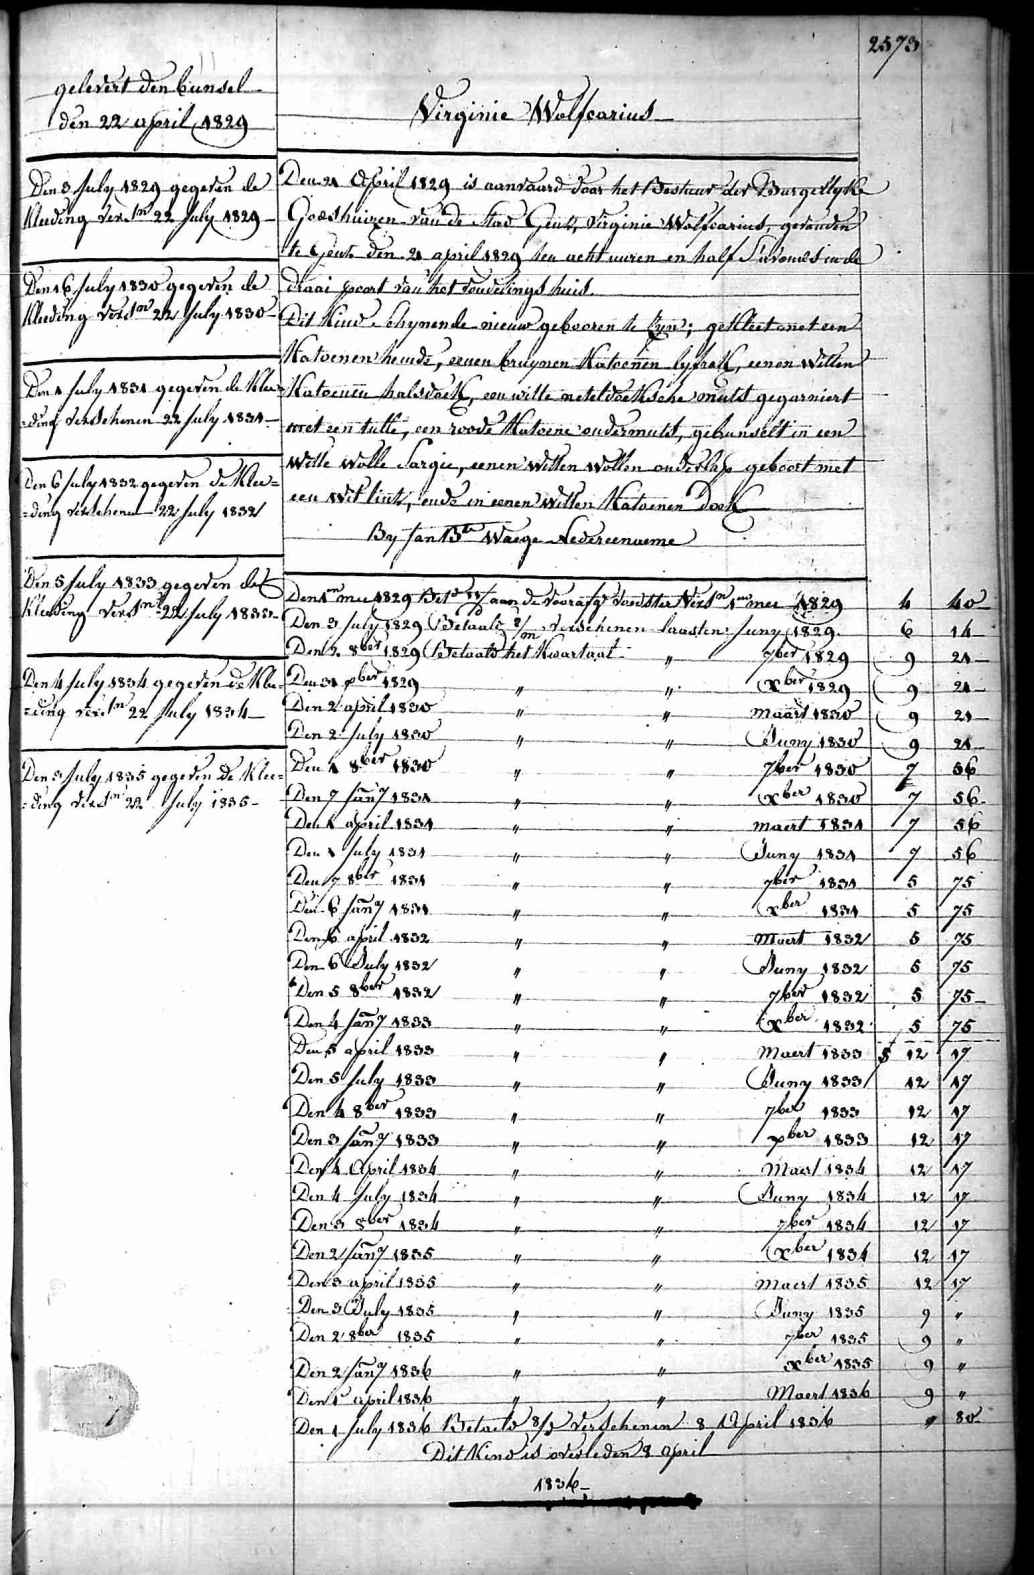 2573
gelevert den bunsel
den 22 april 1829
Virginie Wolfcarius
Den 3 July 1829 gegeven de
Kleeding versn 22 July 1829
Den 16 July 1830 gegeven de
Kleeding versn 22 July 1830
Den 1 July 1831 gegeven de Klee=
=ding verschenen 22 July 1831
Den 6 July 1832 gegeven de Klee=
=ding verschenen 22 July 1832
Den 5 July 1833 gegeven de
Kleeding versn 22 July 1833
Den 4 July 1834 gegeven de Klee=
=ding versn 22 July 1834
Den 3 July 1835 gegeven de Klee=
=ding versn 22 July 1835
Den 21 April 1829 is aanvaard door het Bestuur der Burgerlyke
Godshuizen van de Stad Gent, Virginie Wolfcarius, gevonden
te Gent den 21 april 1829 ten acht uuren en half s'avonds in de
draai poort van het vondelings huis.
Dit Kind schynende nieuw gebooren te Zyn; gekleet met een
Katoenen hemde, eenen bruynen Katoenen lyfrok, eenen witten
Katoenen halsdoek, een witte neteldoeksche muts gegarniert
met een tulle, een roode Katoene ondermuts, gebunselt in een
Witte Wolle Sargie, eenen Witten Wollen onderlap geboort met
een Wit lint, ende in eenen Witten Katoenen Doek
By Jan Bte Waege Nedereename
Den 1n mei 1829 Betd aan de voorafg voedster Versn 1n mei 1829 4 40
Den 3 July 1829 Betaald 2/m verschenen laasten Juny 1829 6 14
Den 2 8ber 1829 Betaald het Kwartaal " 7ber 1829 9 21
Den 31 xber 1829 " " xber 1829 9 21
Den 2 april 1830 " " maart 1830 9 21
Den 2 July 1830 " " Juny 1830 9 21
Den 1 8ber 1830 " " 7ber 1830 7 56
Den 7 Jany 1831 " " xber 1830 7 56
Den 1 april 1831 " " maert 1831 7 56
Den 1 July 1831 " " Juny 1831 7 56
Den 7 8ber 1831 " " 7ber 1831 5 75
Den 6 Jany 1831 " " xber 1831 5 75
Den 6 april 1832 " " Maert 1832 5 75
Den 6 July 1832 " " Juny 1832 5 75
Den 5 8ber 1832 " " 7ber 1832 5 75
Den 4 Jany 1833 " " xber 1832 5 75
Den 5 april 1833 " " Maert 1833 12 17
Den 5 July 1833 " " Juny 1833 12 17
Den 4 8ber 1833 " " 7ber 1833 12 17
Den 3 Jany 1833 " " xber 1833 12 17
Den 4 April 1834 " " Maert 1834 12 17
Den 4 July 1834 " " Juny 1834 12 17
Den 3 8ber 1834 " " 7ber 1834 12 17
Den 2 Jany 1835 " " xber 1834 12 17
Den 3 april 1835 " " Maert 1835 12 17
Den 3 July 1835 " " Juny 1835 9 "
Den 2 8ber 1835 " " 7ber 1835 9 "
Den 2 Jany 1836 " " xber 1835 9 "
Den 1 april 1836 " " Maert 1836 9 "
Den 1 July 1836 Betaald 8/J verschenen 8 April 1836 " 80
Dit Kind is overleden 8 april
1836